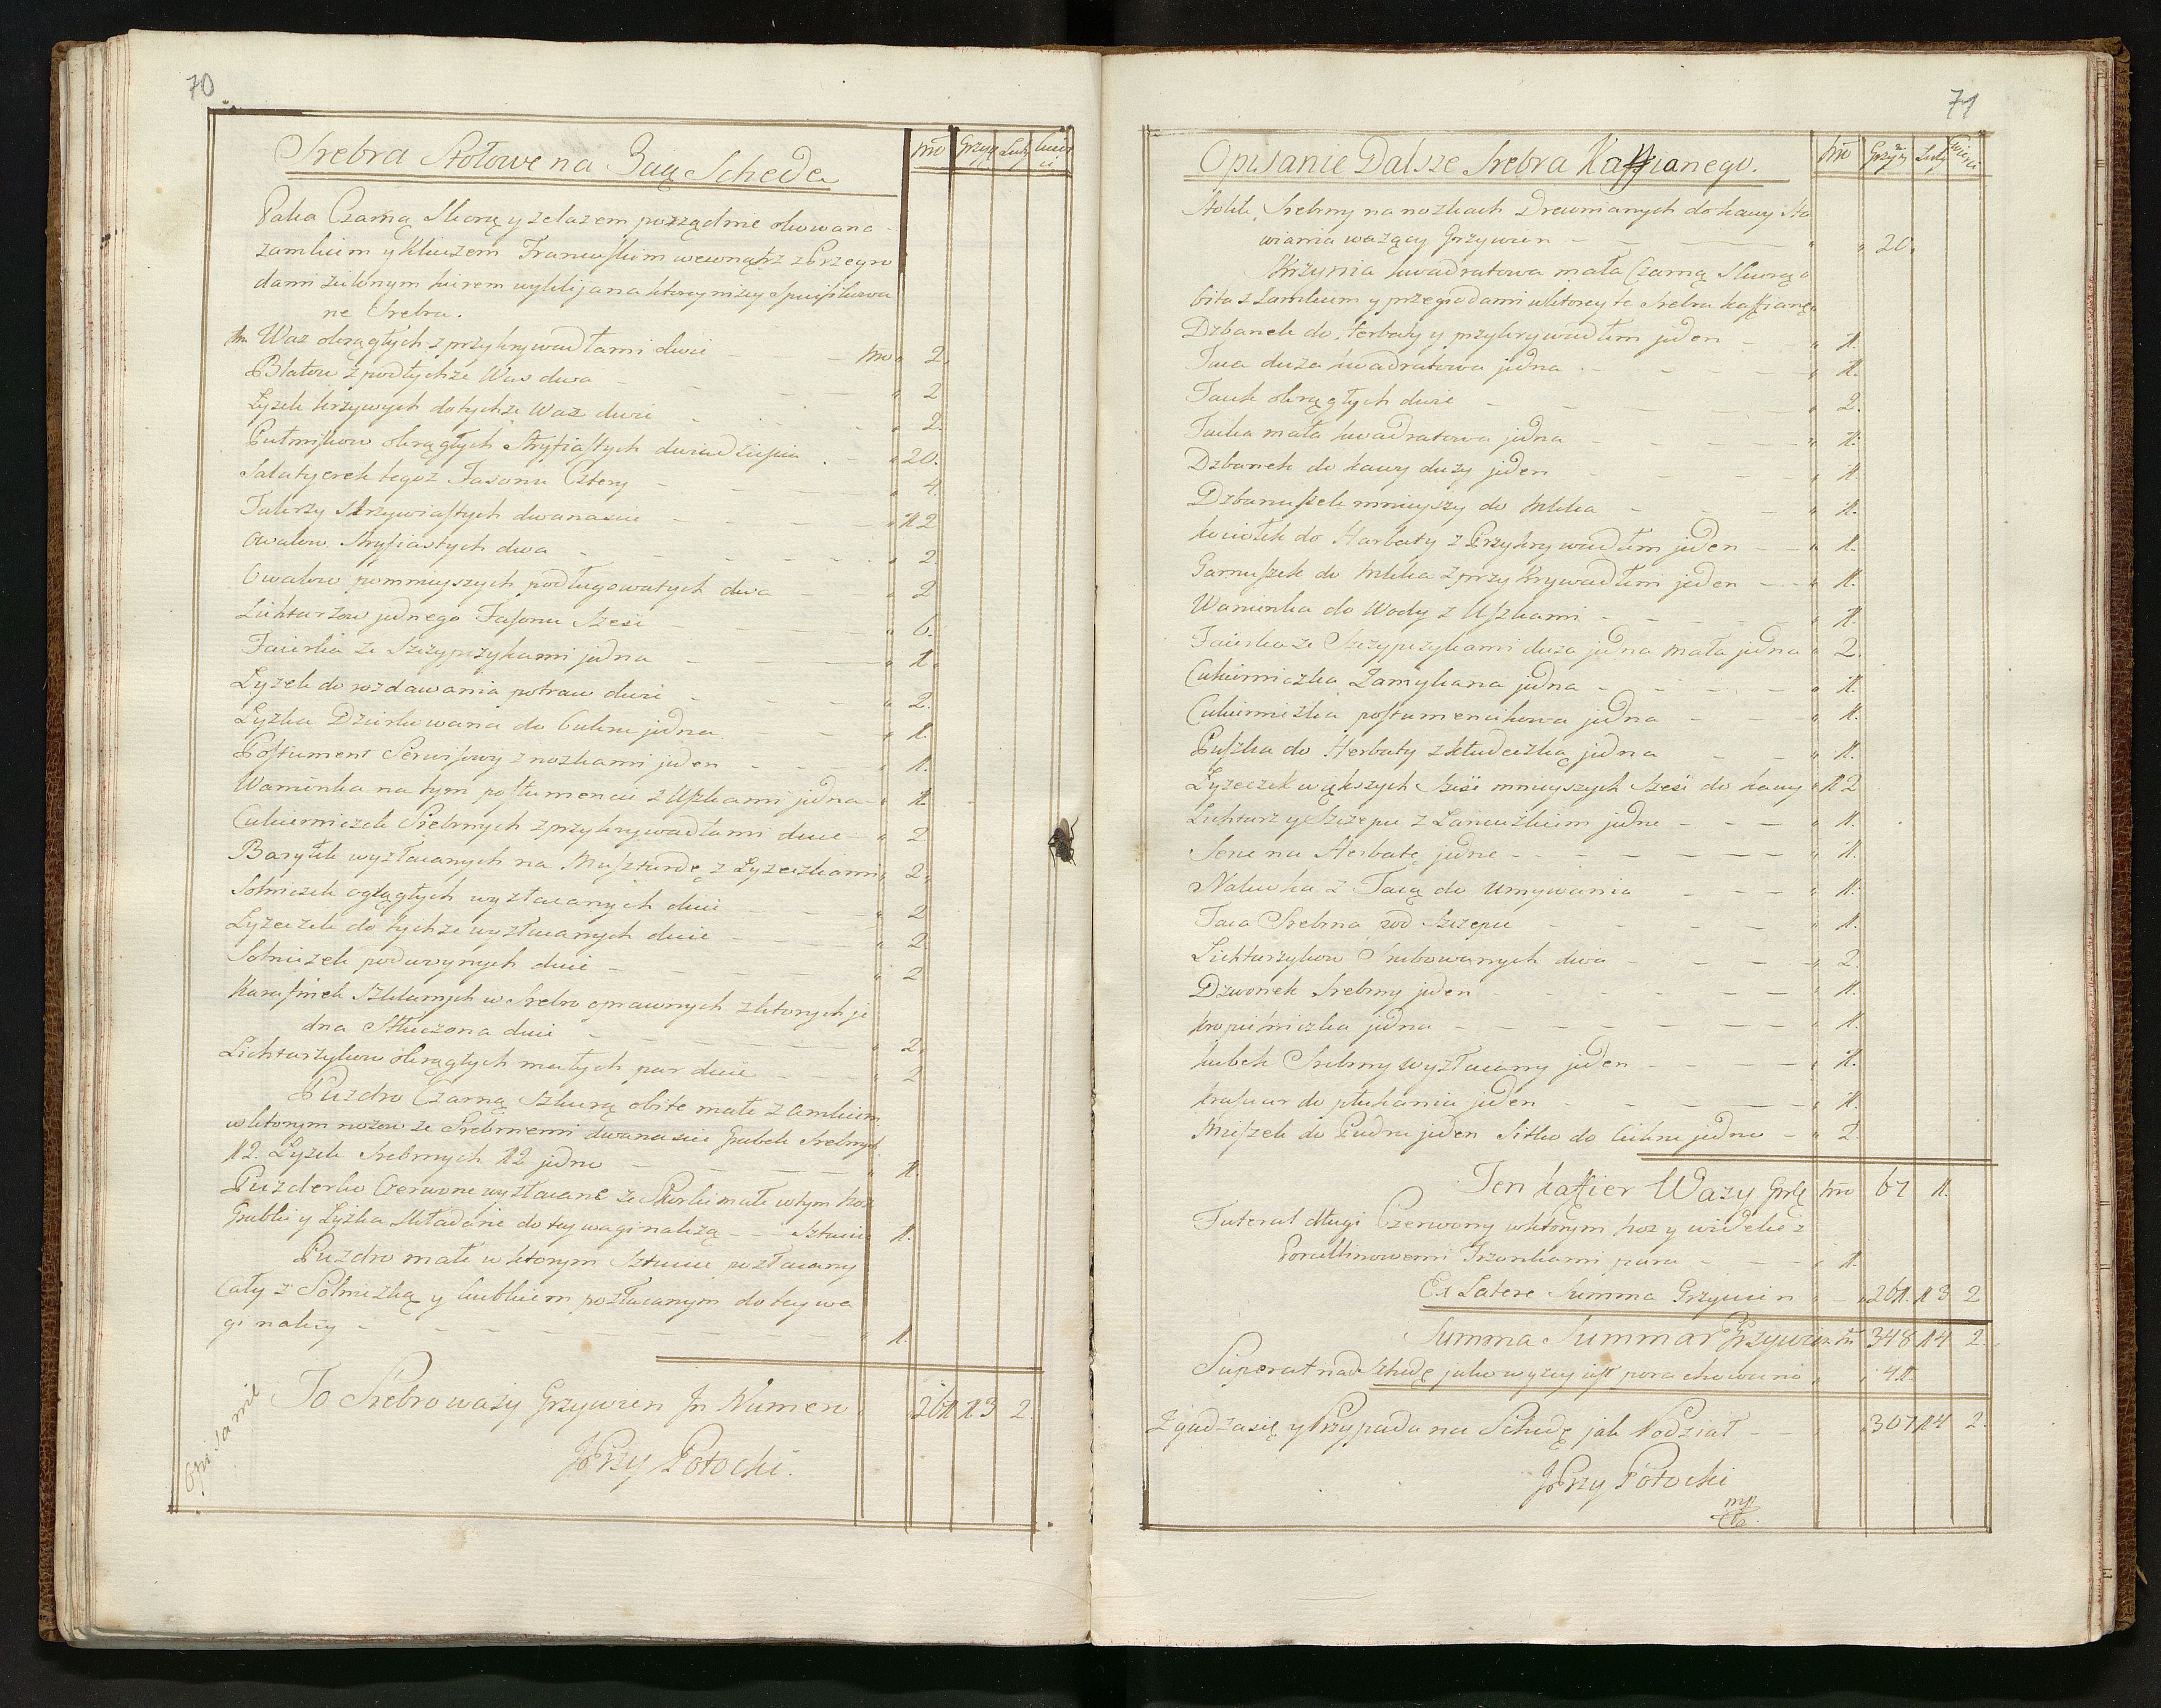 70
Srebra Stołowe na 3cią Schedę
nro Grzyw Luty Cwier
ci
Paka Czarną Skorą y zelazem porządnie okowana
zamkiem y Kluczem Francuskim wewnątrz z Przegro
dami zielonym kirem wyklijana ktorey nizey spisikowa
ne Srebra.
Waz okrągłych z przykrywadłami dwie nro 2
Blatow z pod tychze Waz dwa 2
Łyzek krzywych do tychze Waz dwie 2
Pułmiskow okrągłych Stryfiastych dwadziescia 20.
Salatyerek tegoz Fasonu Cztery 4.
Talerzy Skrzywiastych dwanascie 12
Owalow Stryfiastych dwa 2
Owalow pomnieyszych podługowatych dwa 2
Lichtarzow jednego Fasonu Szesc 6.
Faierka ze Szczypczykami jedna 1.
Łyzek do rozdawania potraw dwie 2.
Łyzka Dziurkowana do Cukru jedna 1.
Postument Serwisowy z nozkami jeden 1.
Wanienka na tym postumencie z Uszkami jedna 1.
Cukierniczek Srebrnych z przykrywadłami dwie 2
Baryłek wyzłacanych na Musztardę z Łyzeczkami 2.
Solniczek oglągłych wyzłacanych dwie 2
Łyzeczek do tychze wyzłacanych dwie 2
Solniczek podwoynych dwie 2
Karafinek Szklannych w Srebro oprawnych z ktorych je
dna Stłuczona dwie 2.
Lichtarzykow okrągłych małych par dwie 2
Puzdro Czarną Szkurą obite małe z Zamkiem
w ktorym nozow ze Srebrnemi dwanascie Grabek Srebrnych
12. Łyzek Srebrnych 12 jedno 1.
Puzderko Czerwone wyzłacane ze Skorki małe w tym noz
Grabki y Łyzka Składane do tey wagi nalezą Sztuciec 1.
Puzdro małe w ktorym Sztuciec pozłacany
Cały z Solniczką y kubkiem pozłacanym do tey wa
gi nalezy 1.
To Srebro wazy Grzywien In Numero 261 13 2.
JPrzy Potocki.
71
Opisanie Dalsze Srebra Kaffianego.
nro Grzyw Luty Cwierci
Stolik Srebrny na nozkach Drewnianych do kawy Sta
wiania wazący Grzywien 20.
Skrzynia kwadratowa mała Czarną Skorą o
bita z Zamkiem y przegrodami w ktorey te Srebra kaffiane
Dzbanek do Herbaty y przykrywadłem jeden 1.
Taca duza kwadratowa jedna 1.
Tacek okrągłych dwie 2.
Tacka mała kwadratowa jedna 1.
Dzbanek do kawy duzy jeden 1.
Dzbanuszek mnieyszy do mleka 1.
Kociołek do Harbaty z Przykrywadłem jeden 1.
Garnuszek do mleka z przykrywadłem jeden 1.
Wanienka do Wody z Uszkami 1.
Faierka ze Szczypczykami duza jedna mała jedna 2.
Cukierniczka Zamykana jedna 1.
Cukierniczka postumencikowa jedna 1.
Puszka do Herbaty z kłudeczką jedna 1.
Łyzeczek większych Szesc mnieyszych Szesc do kawy 12
Lichtarz y Szczypce z Lancuszkiem jedne 1.
Serce na Herbatę jedne 1.
Nalewka z Tacą do Umywania 1.
Taca Srebrna pod Szczypce 1.
Lichtarzykow Srubowanych dwa 2.
Dzwonek Srebrny jeden 1.
Kropielniczka jedna 1.
Kubek Srebrny wyzłacany jeden 1.
do płukania jeden 1.
Mieszek do Pudru jeden Sitko do Cukru jedno 2
Ten kaffier Wazy Grzy nro 67 1.
Futerał długi Czerwony w ktorym noz y widelec z
Porcellinowemi Trzonkami para 1.
Ex Latere Summa Grzywien 261. 13 2
Summa Summar Grzywien 348 14 2.
Superat nad Schedę jako wyzey iest porachowano 41.
Zgadza się y Przypada na Schedę jak Podział 307 14 2.
JPrzy Potocki
mp